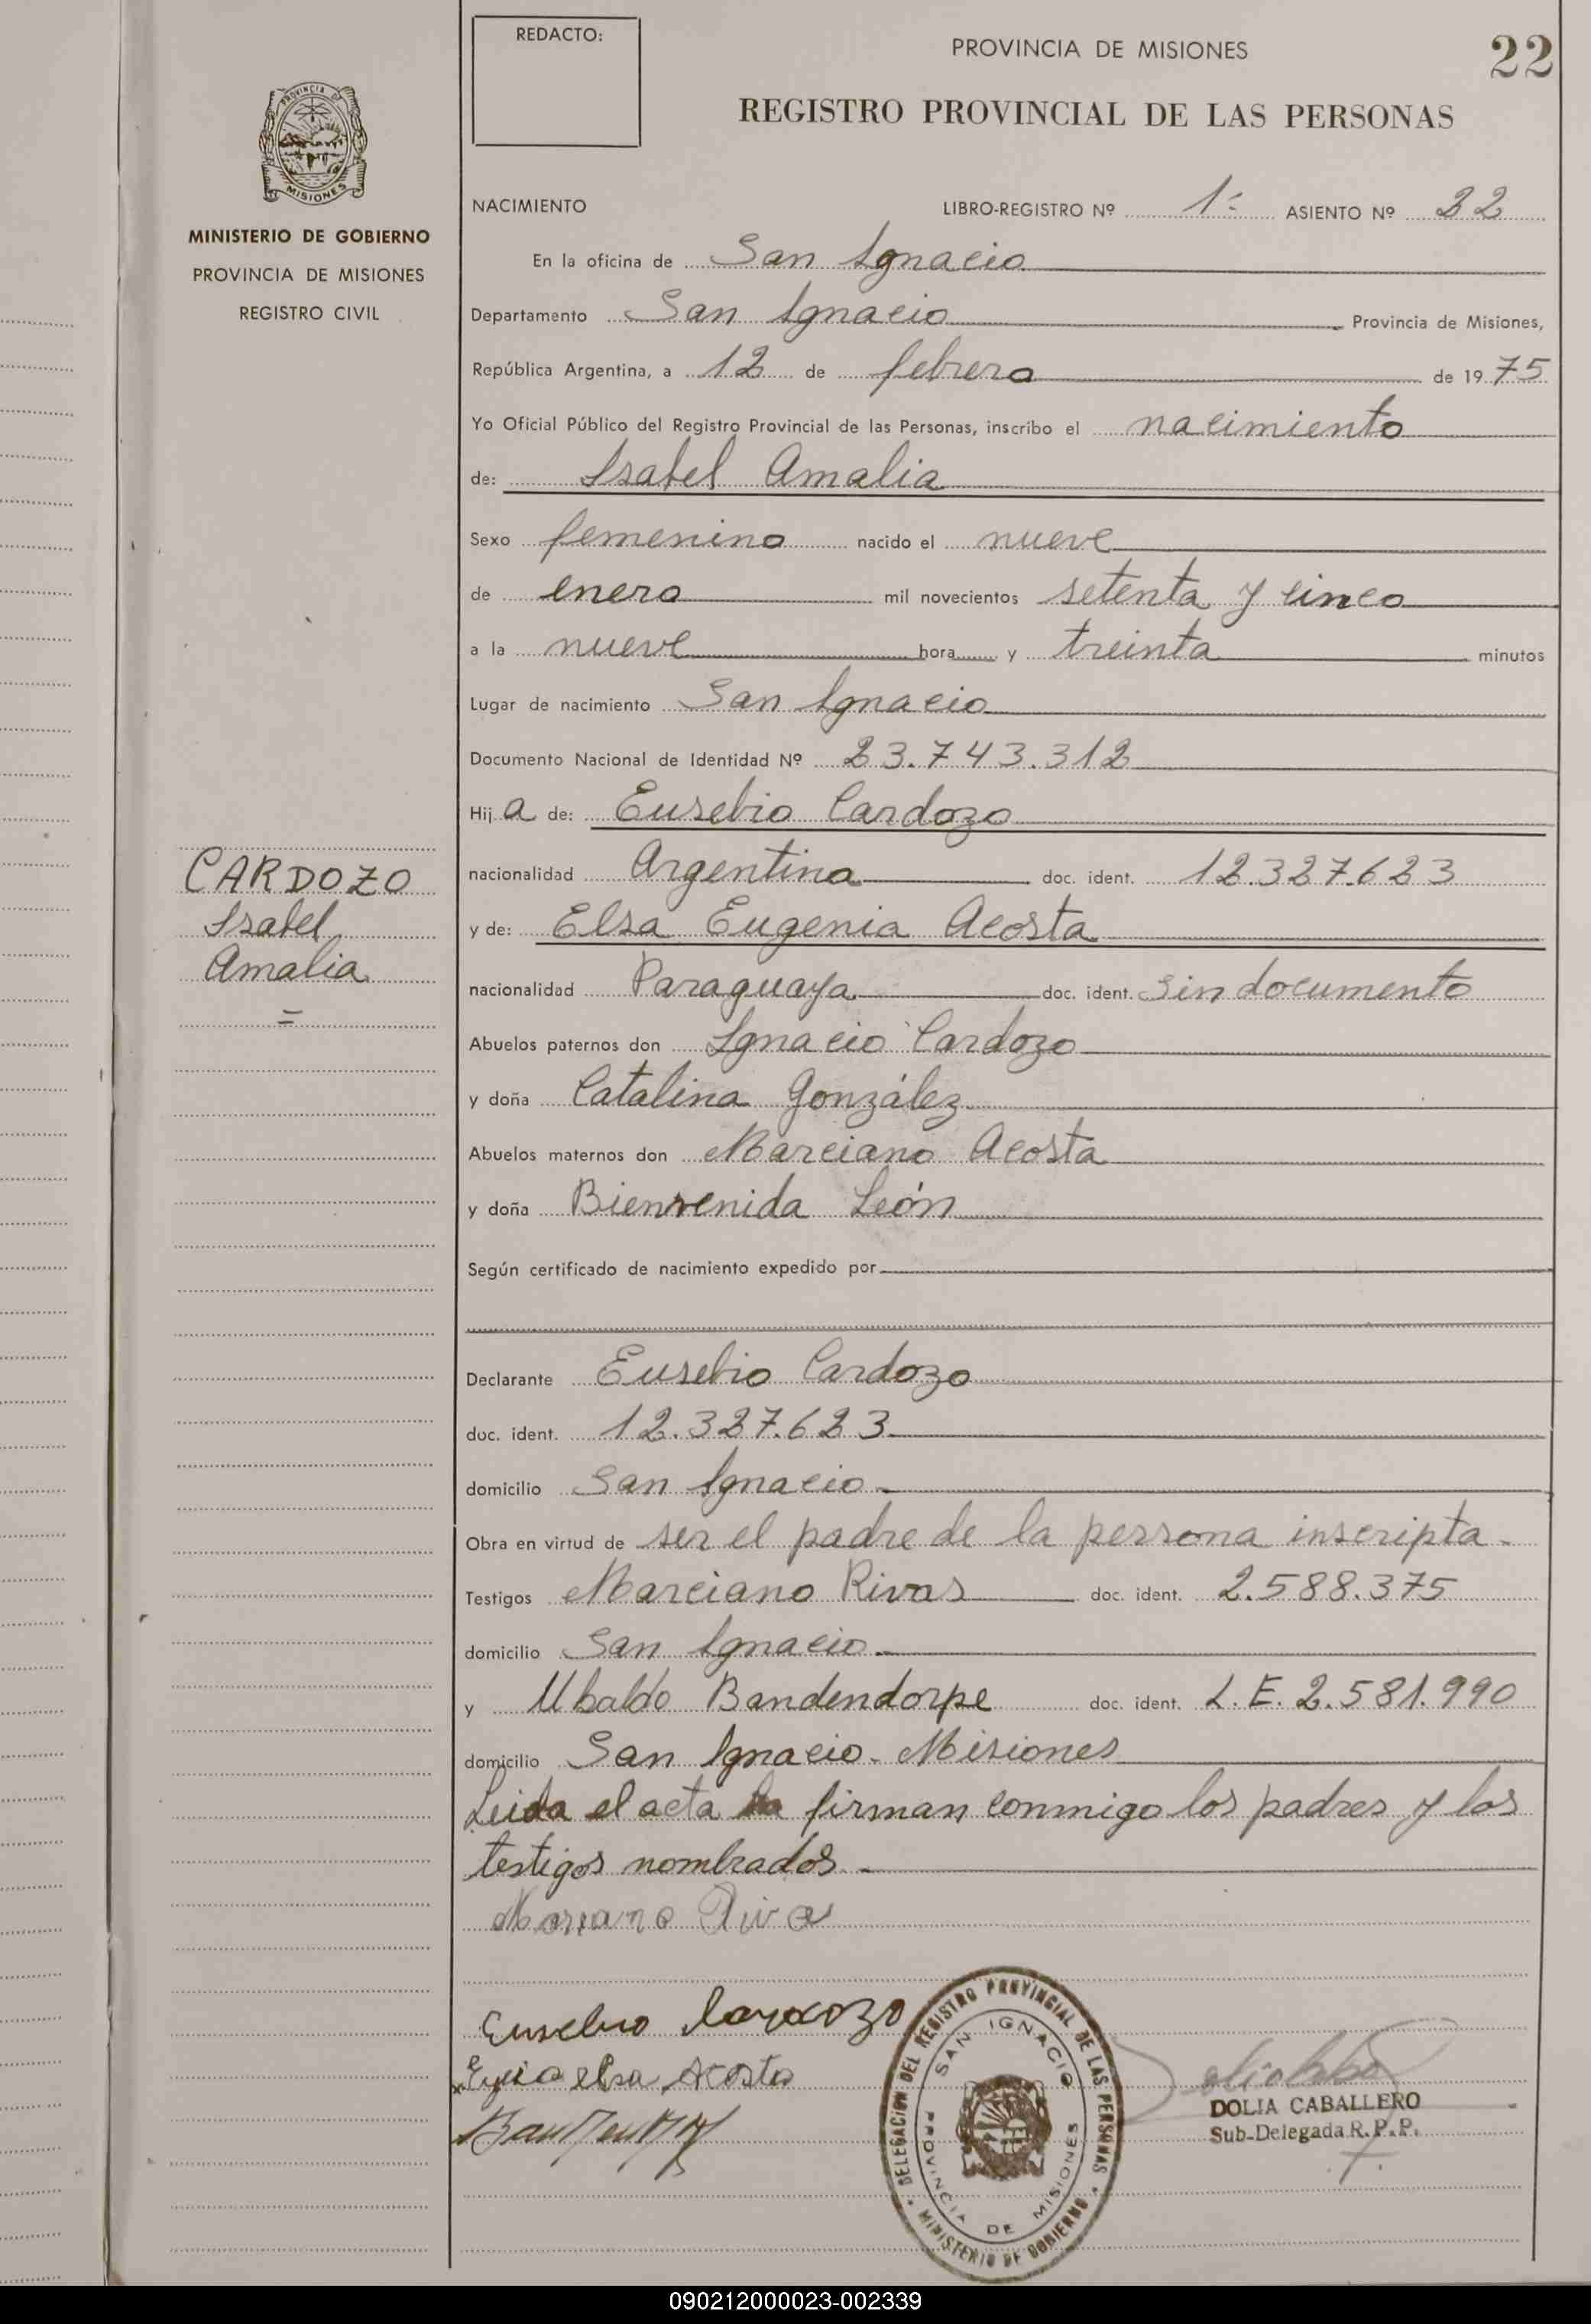 REDACTO:
PROVINCIA DE MISIONES
22
REGISTRO PROVINCIAL DE LAS PERSONAS
PROVINCIA DE
MISIONES
MINISTERIO DE GOBIERNO
PROVINCIA DE MISIONES
REGISTRO CIVIL
NACIMIENTO LIBRO-REGISTRO Nº 1º ASIENTO Nº 22
En la oficina de San Ignacio
Departamento San Ignacio Provincia de Misiones,
República Argentina, a 12 de febrero de 1975
Yo Oficial Público del Registro Provincial de las Personas, inscribo el nacimiento
de: Isabel Amalia
Sexo femenino nacido el nueve
de enero mil novecientos setenta y cinco
a la nueve hora y treinta minutos
Lugar de nacimiento San Ignacio
Documento Nacional de Identidad Nº 23.743.312
Hija de: Eusebio Cardozo
nacionalidad Argentina doc. ident. 12.327.623
y de: Elsa Eugenia Acosta
nacionalidad Paraguaya doc. ident. sin documento
Abuelos paternos don Ignacio Cardozo
y doña Catalina González
Abuelos maternos don Marciano Acosta
y doña Bienvenida León
CARDOZO
Isabel
Amalia
=
Según certificado de nacimiento expedido por
Declarante Eusebio Cardozo
doc. ident. 12.327.623
domicilio San Ignacio
Obra en virtud de ser el padre de la persona inscripta.
Testigos Marciano Rivas doc. ident. 2.588.375
domicilio San Ignacio
y Ubaldo Bandendorpe doc. ident. L.E. 2.581.990
domicilio San Ignacio - Misiones
Leida el acta la firman conmigo los padres y los
testigos nombrados.
Eusebio Cardozo
elsa Acosta
DELEGACION DEL REGISTRO PROVINCIAL DE LAS PERSONAS
MINISTERIO DE GOBIERNO
SAN IGNACIO
PROVINCIA DE MISIONES
DOLIA CABALLERO
Sub-Delegada R.P.P.
090212000023-002339